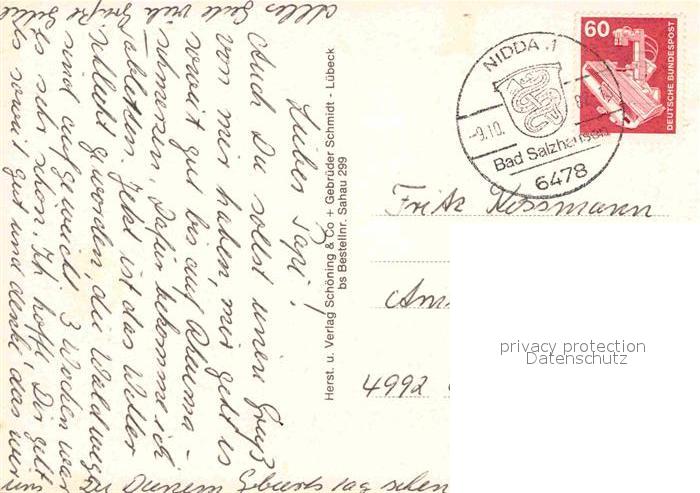 Lieber Papi!
Auch Du sollst unsere Grüß
von mir haben, mir geht es
soweit gut bis auf Rheuma-
schmerzen, Dafür bekomme ich
Tabletten. Jetzt ist das Wetter
schlecht geworden, die Waldwege
sind aufgeweicht. 3 Wochen war
es sehr schön. Ich hoffe, Dir geht
es soweit gut und denke das wir
uns zu Deinem Geburtstag sehen
Alles Gute viele Grüße
Herst. u. Verlag Schöning & Co + Gebrüder Schmidt - Lübeck
bs Bestellnr. Sahau 299
NIDDA 1
-9.10.
Bad Salzhausen
6478
60
DEUTSCHE BUNDESPOST
Fritz Kessmann
Am
4992
privacy protection
Datenschutz